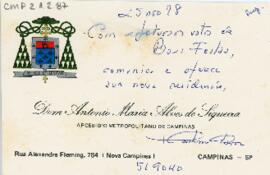 CMP 2.1.2.87
Com afetuosos votos de
Boas Festas,
comunica e oferece
sua nova residência,
Dom Antonio Maria Alves de Siqueira
ARCEBISPO METROPOLITANO DE CAMPINAS
Rua Alexandre Fleming, 784 (Nova Campinas)
CAMPINAS - SP
519040